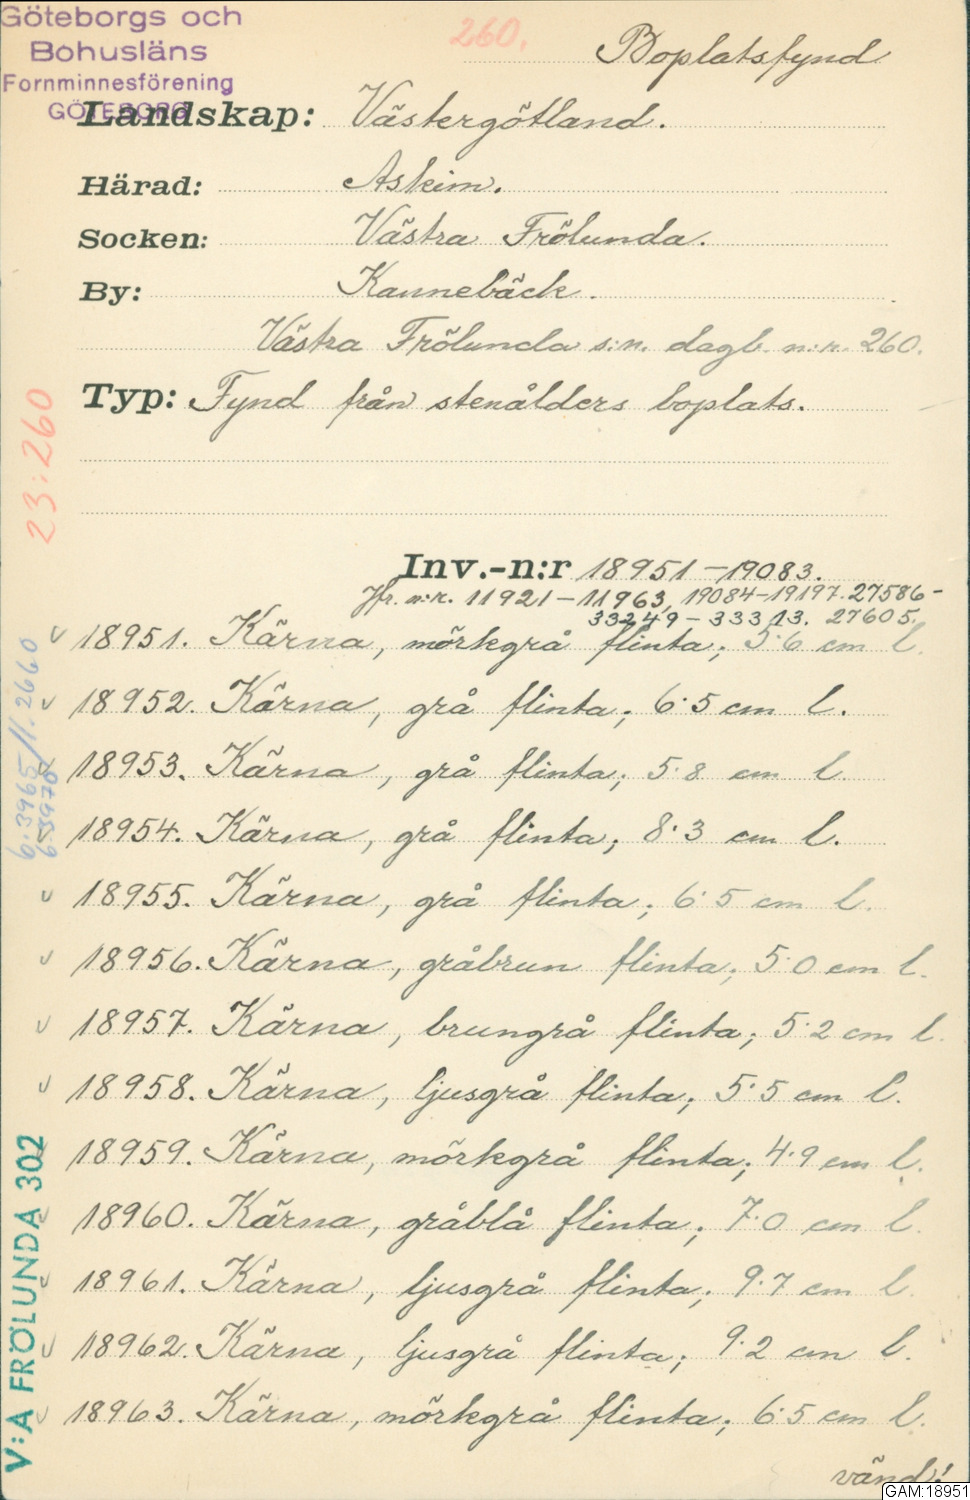 Göteborgs och
Bohusläns
Fornminnesförening
GÖTEBORG
260.
Boplatsfynd
Landskap: Västergötland.
Härad: Askim.
Socken: Västra Frölunda.
By: Kannebäck.
Västra Frölunda s:n. dagb. n:r. 260.
Typ: Fynd från stenålders boplats.
23:260
Inv.-n:r 18951-19083.
Jfr. n:r. 11921-11963, 19084-19197. 27586-
33249-33313. 27605.
v 18951. Kärna, mörkgrå flinta; 5·6 cm l.
v 18952. Kärna, grå flinta; 6·5 cm l.
18953. Kärna, grå flinta; 5·8 cm l.
18954. Kärna, grå flinta; 8·3 cm l.
v 18955. Kärna, grå flinta; 6·5 cm l.
v 18956. Kärna, gråbrun flinta; 5·0 cm l.
v 18957. Kärna, brungrå flinta; 5·2 cm l.
v 18958. Kärna, ljusgrå flinta; 5·5 cm l.
18959. Kärna, mörkgrå flinta; 4·9 cm l.
v 18960. Kärna, gråblå flinta; 7·0 cm l.
v 18961. Kärna, ljusgrå flinta; 9·7 cm l.
v 18962. Kärna, ljusgrå flinta; 9·2 cm l.
v 18963. Kärna, mörkgrå flinta; 6·5 cm l.
vänd!
V:A FRÖLUNDA 302
GAM:18951